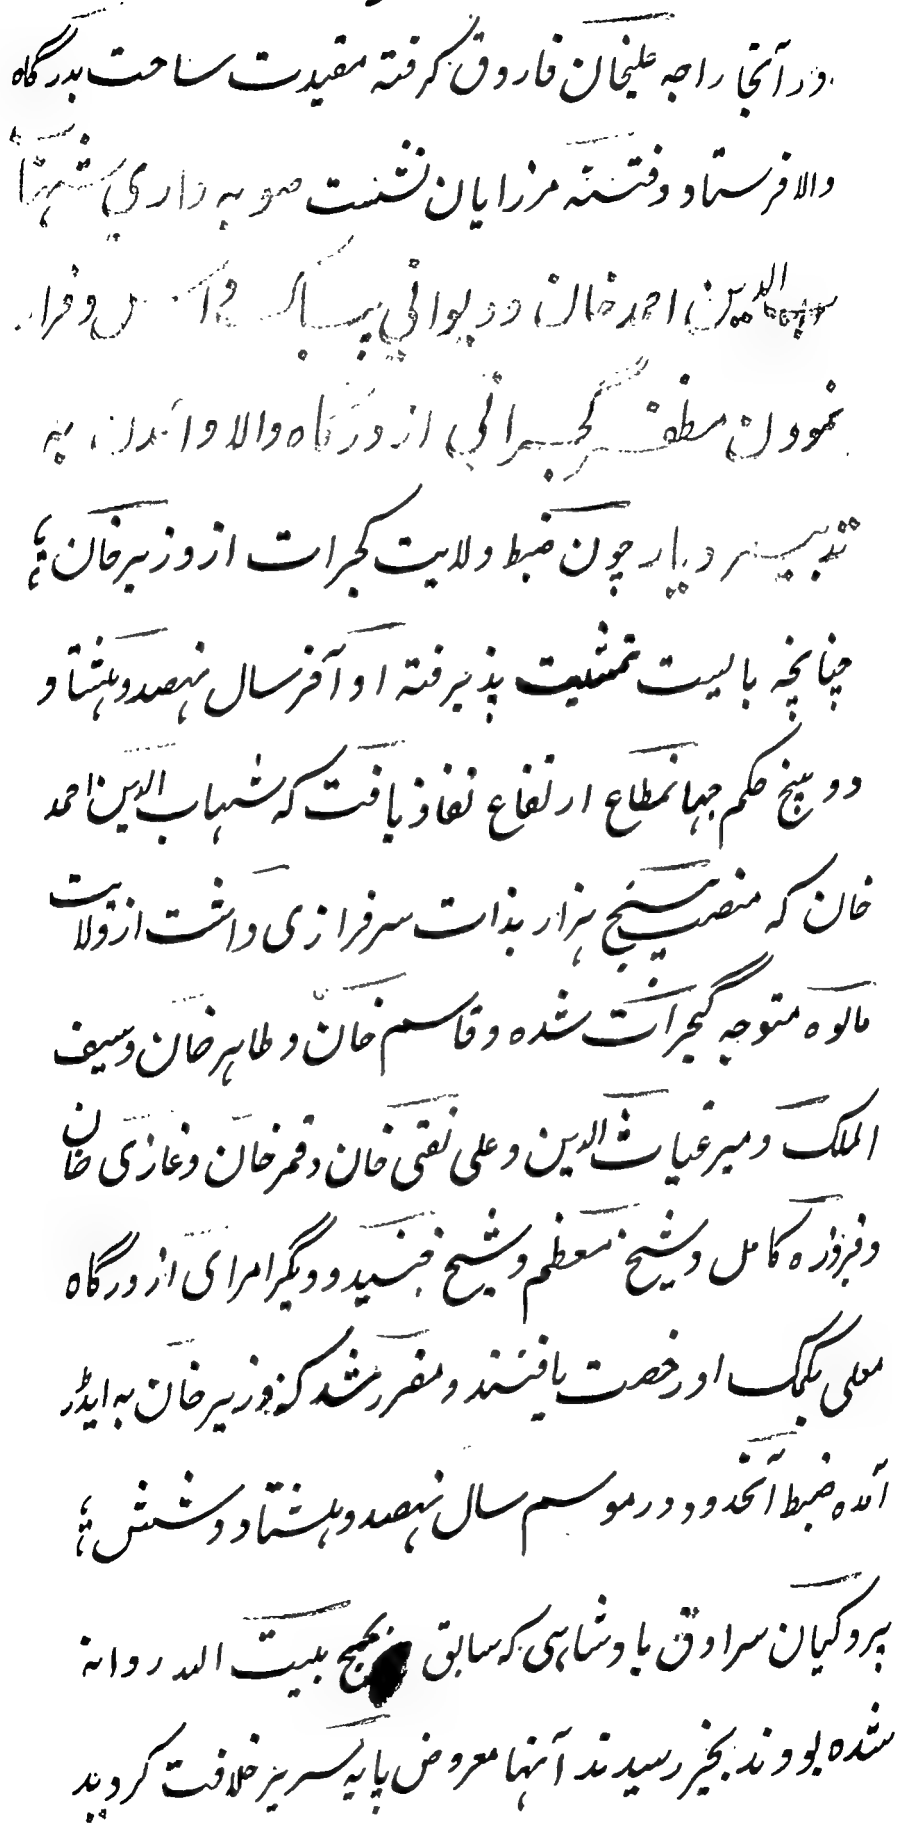 در آنجا راجه علیخان فاروقی گرفته مقیدت ساحت بدرگاه
والا فرستاد و فتنه مرزایان نشست صوبه داری شهاب
الدین احمد خان و دیوانی پیاکداس و فرار
نمودن مظفر گجراتی از درگاه والا و آمدن به
تدبیر و پار چون ضبط ولایت گجرات از وزیر خان
چنانچه بایست تمشیت پذیرفته او آخر سال نهصد و هشتاد و
دو پنج حکم جهانمطاع ارتفاع نفاذ یافت که شهاب الدین احمد
خان که منصب پنج هزار بذات سرفرازی داشت از ولایت
مالوه متوجه گجرات شده و قاسم خان و طاهر خان و سیف
الملک و میر غیاث الدین و علی نقی خان و قمر خان و غازی خان
و فروزه کامل و شیخ معظم و شیخ جنید و دیگر امرای از درگاه
معلی بکمک او رخصت یافتند و مقرر شد که وزیر خان به ایڈر
آمده ضبط آنحدود و در موسم سال نهصد و هشتاد و شش
پروگیان سراوق پادشاهی که سابق بحج بیت الله روانه
شده بودند بخیر رسیدند آنها معروض پایه سریر خلافت گردید